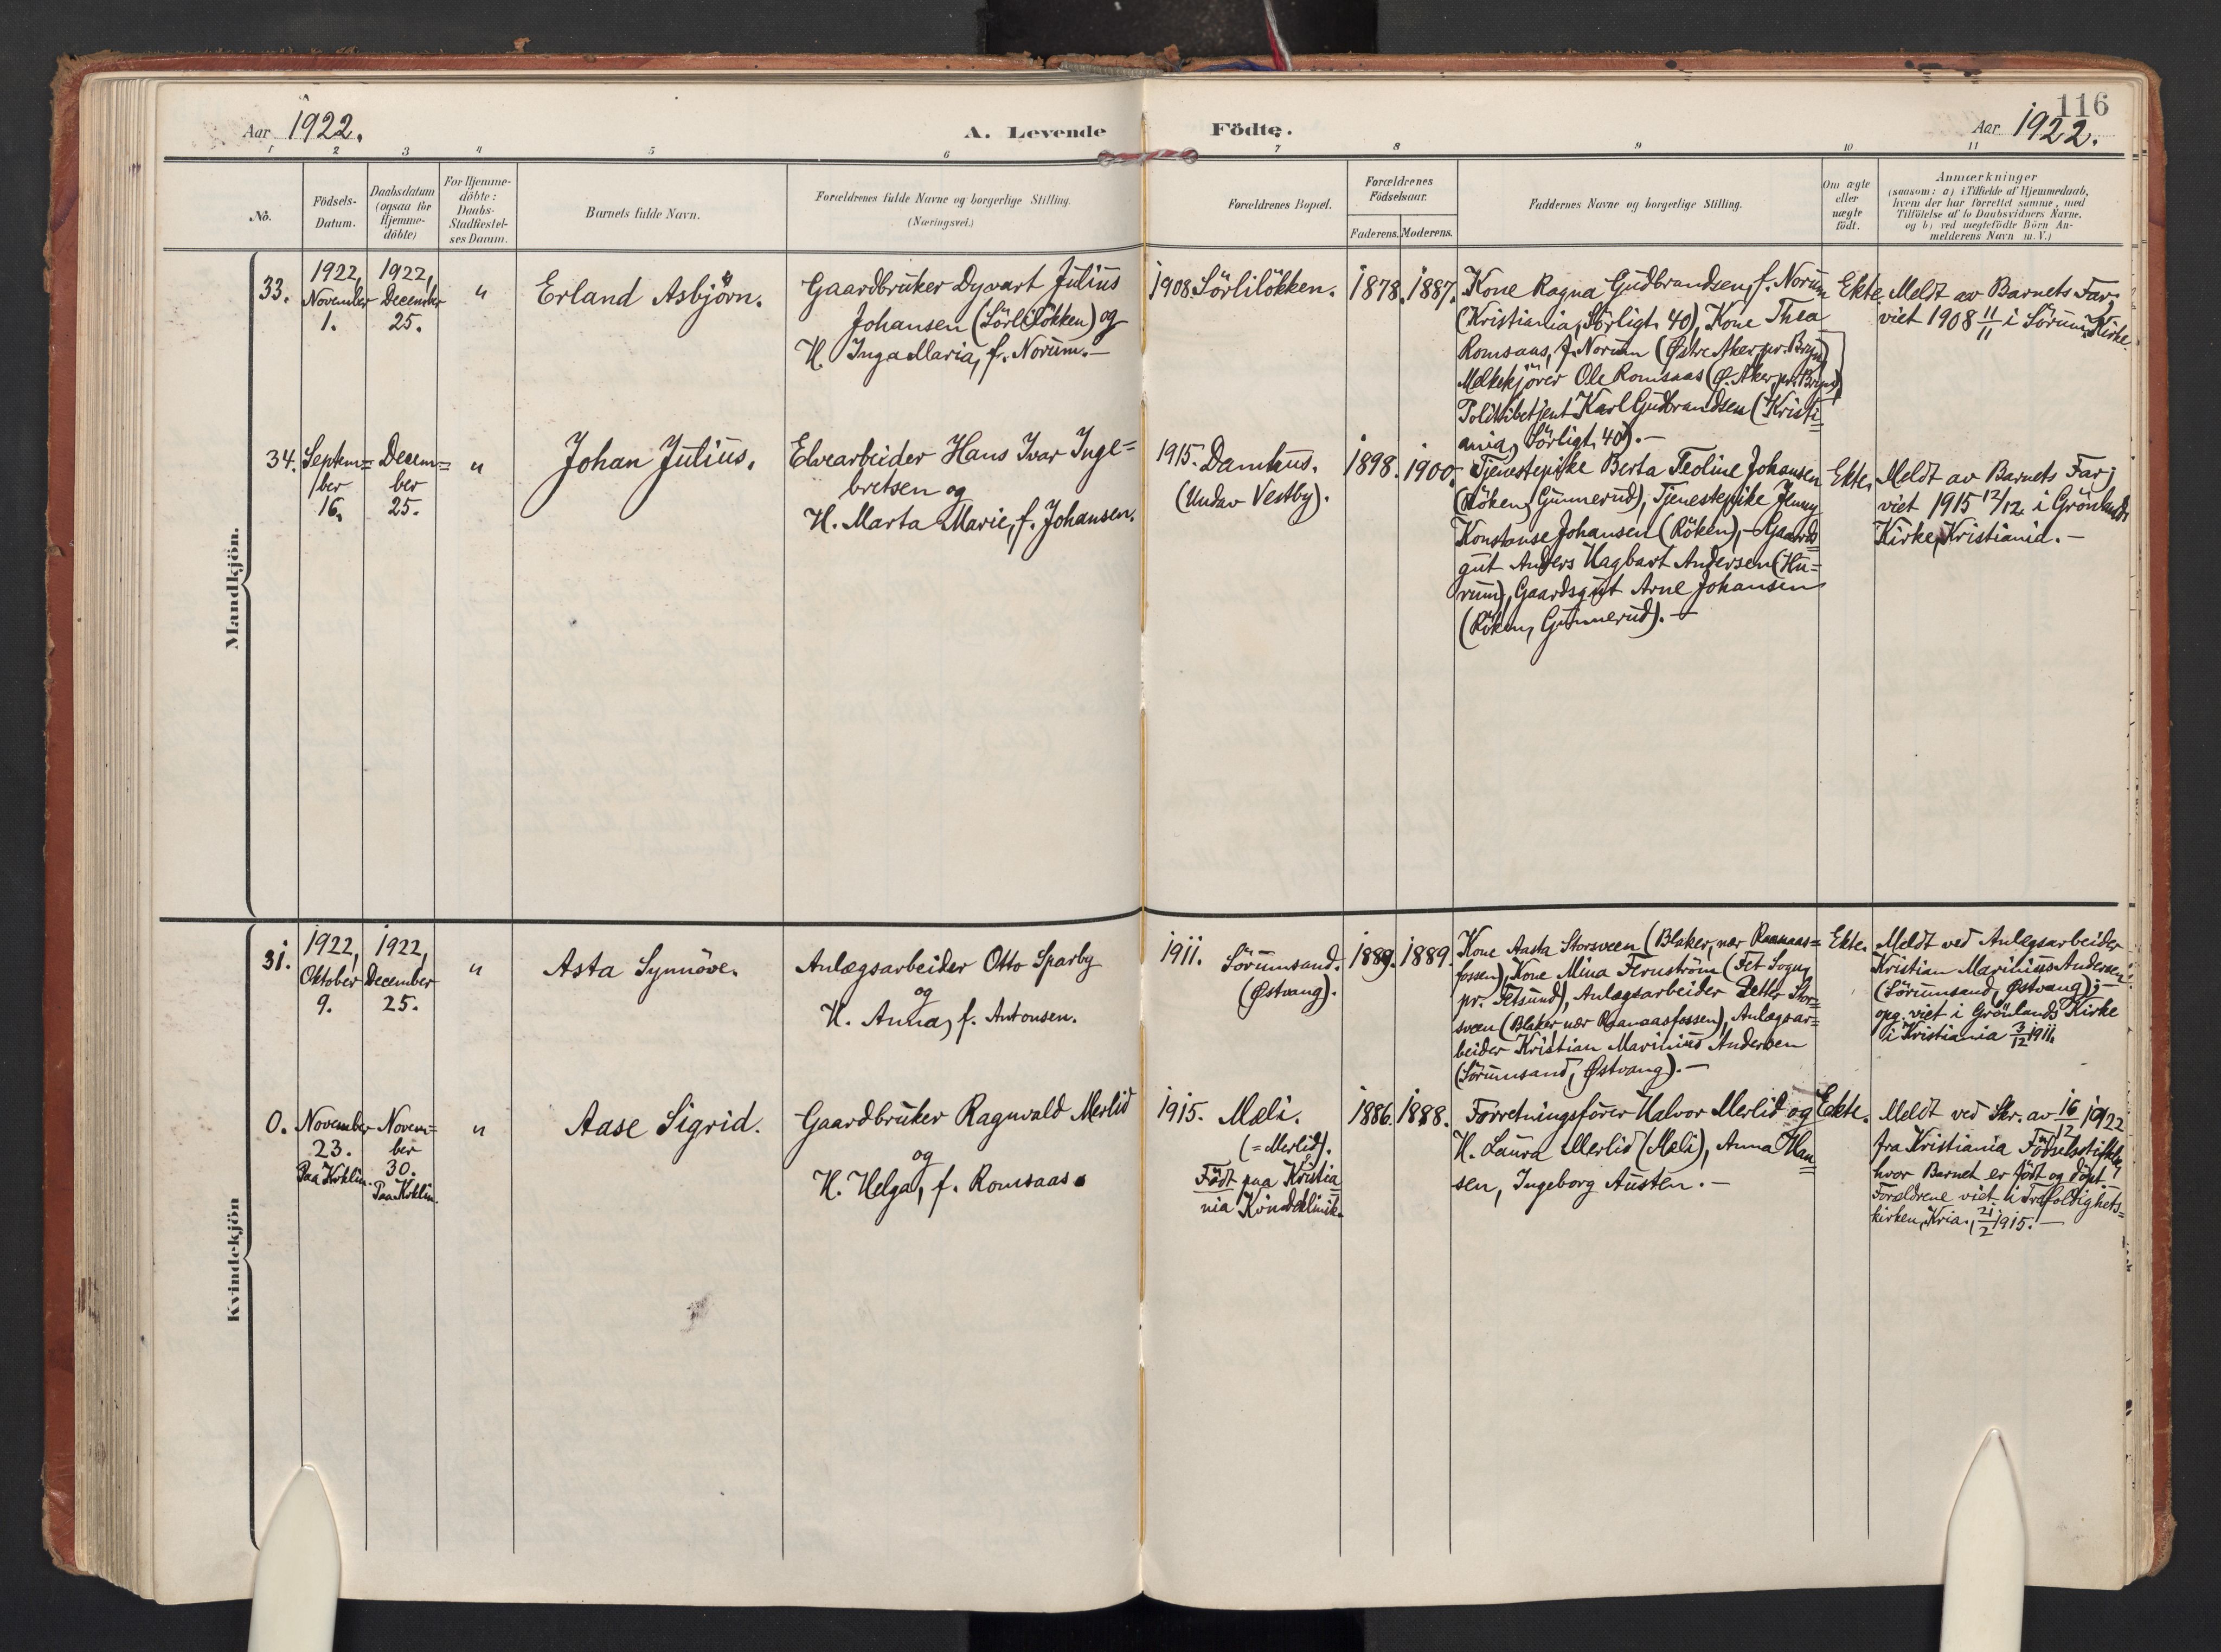 116
Aar 1922.
A. Levende Födte.
Aar 1922.
1 2 3 4 5 6 7 8 9 10 11
No.
Födsels-
Datum.
Daabsdatum
(ogsaa for
Hjemme-
döbte)
For Hjemme-
döbte:
Daabs-
Stadfæstel-
ses Datum.
Barnets fulde Navn.
Forældrenes fulde Navne og borgerlige Stilling.
(Næringsvei.)
Forældrenes Bopæl.
Forældrenes
Födselsaar.
Faderens. Moderens.
Faddernes Navne og borgerlige Stilling.
Om ægte
eller
uægte
født.
Anmærkninger
(saasom: a) i Tilfælde af Hjemmedaab,
hvem der har forrettet samme, med
Tilföielse af to Daabsvidners Navne,
og b) ved uegtefödte Börn An-
melderens Navn m. V.)
Mandkjön.
33.
1922,
November
1.
1922,
December
25.
"
Erland Asbjörn.
Gaardbruker Dyvart Julius
Johansen (Sörlilökken) og
H. Inga Maria, f. Norum.-
1908. Sörlilökken.
1878. 1887.
Kone Ragna Gudbrandsen, f. Norum
(Kristiania, Sörligt. 40), Kone Thea
Romsaas, f. Norum (Østre Aker pr. Bryn)
Melkekjörer Ole Romsaas (Ø. Aker pr. Bryn),
Politibetjent Karl Gudbrandsen (Kristi=
ania, Sörligt. 40).-
Ekte.
Meldt av Barnets Far;
viet 1908 11/11 i Sörum Kirke.
34.
Septem=
ber
16.
Decem=
ber
25.
"
Johan Julius.
Elvearbeider Hans Ivar Inge=
bretsen og
H. Marta Marie, f. Johansen.
1915. Damhus.
(Undav Vestby).
1898. 1900.
Tjenestepike Berta Teoline Johansen
(Röken, Gunnerud), Tjenestepike Jenny
Konstanse Johansen (Röken), - Gaards=
gut Anders Hagbart Andersen (Hu=
rum), Gaardsgut Arne Johansen
(Röken, Gunnerud).-
Ekte.
Meldt av Barnets Far;
viet 1915 12/12 i Grönlands
Kirke, Kristiania.-
Kvindekjön
31.
1922,
Oktober
9.
1922,
December
25.
"
Asta Synnöve.
Anlægsarbeider Otto Sparby
og
H. Anna, f. Antonsen.
1911. Sörumsand.
(Østvang).
1889. 1889.
Kone Aasta Storsveen (Blaker, nær Raanaas=
fossen), Kone Mina Fernström (Fet Sogn,
pr. Fetsund), Anlægsarbeider Stor=
sveen (Blaker nær Raanaasfossen), Anlægsar=
beider Kristian Marinius Andersen
(Sörumsand, Østvang).-
Ekte.
Meldt ved Anlegsarbeider
Kristian Marinius Andersen
(Sörumsand, Østvang);-
opg. viet i Grönlands Kirke
i Kristiania 3/12 1911.
0.
November
23.
Paa Kvklin.
Novem=
ber
30.
Paa Kvklin.
"
Aase Sigrid.
Gaardbruker Ragnvald Merlid
og
H. Helga, f. Romsaas.
1915. Mæli.
(=Merlid).
Født paa Kristia
nia Kvindeklinik.
1886. 1888.
Forretningsförer Halvor Merlid og
H. Laura Merlid (Mæli), Anna Han=
sen, Ingeborg Austen.-
Eekte.
Meldt ved Skr. av 16/12 1922
fra Kristiania Födselsstiftelse,
hvor Barnet er födt og döpt.
Forældrene viet i Trefoldighets=
kirken, Kria., 21/2 1915.-